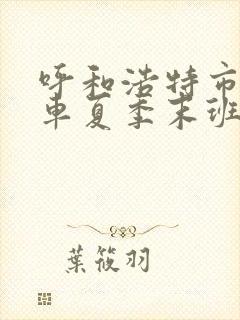 呼和浩特市
車夏季末班
葉筱羽